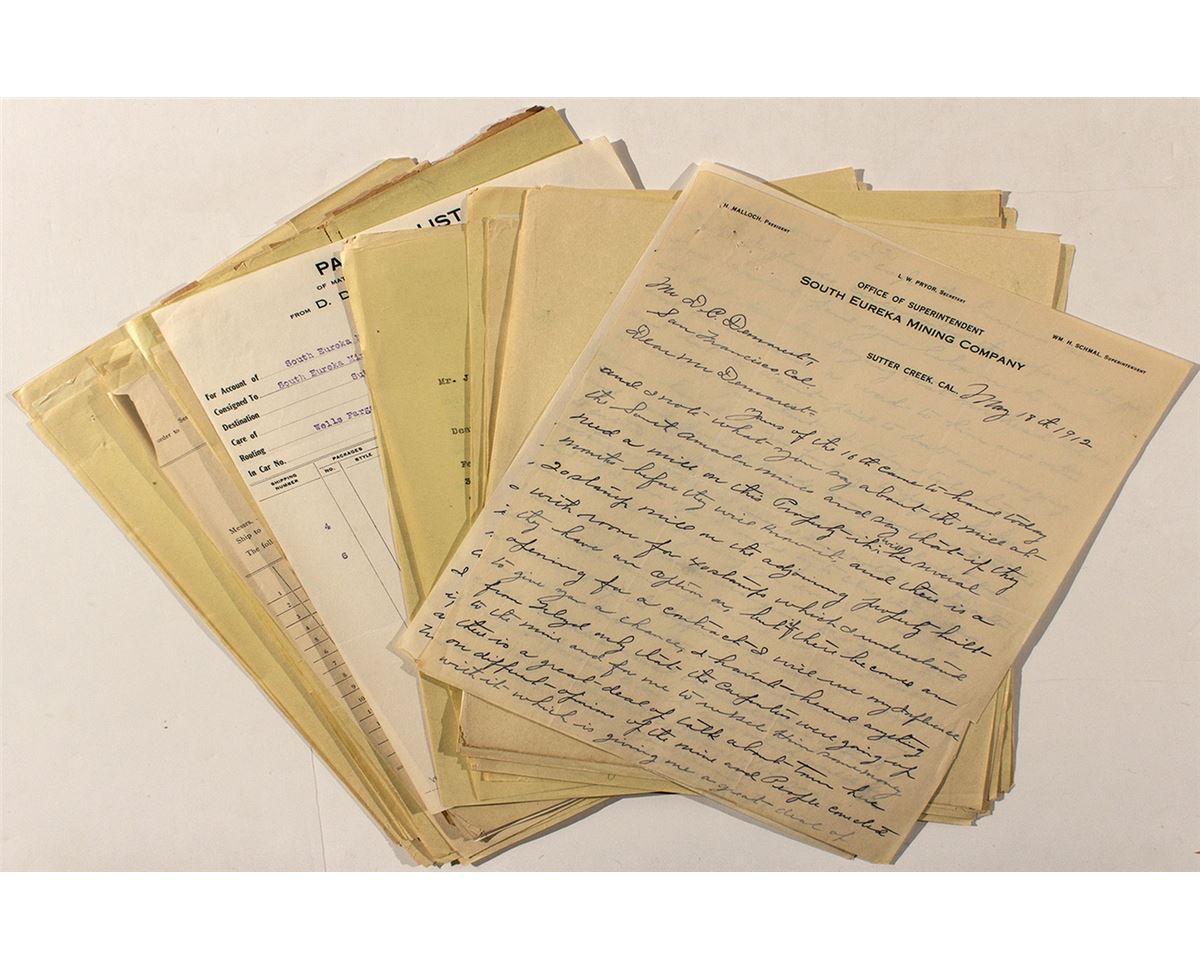 H. MALLOCH, PRESIDENT
L. W. PRYOR, SECRETARY
WM. H. SCHMAL, SUPERINTENDENT
OFFICE OF SUPERINTENDENT
SOUTH EUREKA MINING COMPANY
SUTTER CREEK, CAL. May 18th 1912
Mr D. C. Demarest,
San Francisco, Cal.
Dear Mr Demarest-
Yours of the 16th came to hand today
and I note what you say about the mill at
the South Amador mines and say that if they
need a mill on this Property it will be several
months before they will know it, and there is a
20 stamp mill on the adjoining property built
with room for 40 stamps which I understand
they have an option on, but if there becomes an
opening for a contract I will use my influence
to give you a chance, I havent heard anything
from only that the were going up
to the mine and for me to him
there is a great deal of talk about town here
on different opinions of the mine and People
with it which is giving me a great deal of
PA LIST
OF MAT
FROM D. D
For Account of South Eureka M
Consigned To South Eureka Min
Destination Sut
Care of
Routing Wells Farg
In Car No.
SHIPPING NUMBER
PACKAGES
NO. STYLE
4
6
Mr. J
Dear
Messrs.
Ship to
The foll
order to
1
2
3
4
5
6
7
8
9
10
11